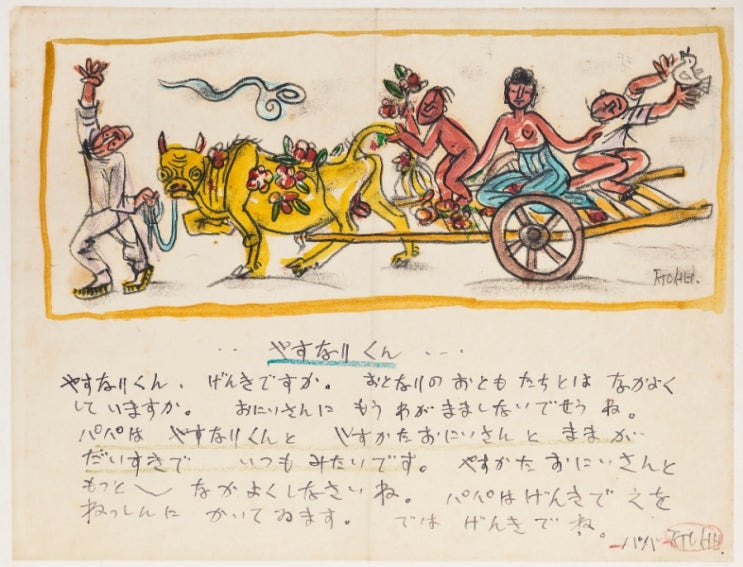 KTOHEI.
‥ やすなりくん ‥‥
やすなりくん、げんきですか。 おとなりの おとも たちとは なかよく
して いますか。 おにいさんに もう わがまましないでせう ね。
パパは やすなりくんと やすかたおにいさんと ままが
だいすきで いつも みたいです。 やすかた おにいさんと
もっと〳〵 なかよくしなさいね。 パパはげんきで えを
ねっしんに かいてゐます。 では げんきでね。
ーパパー